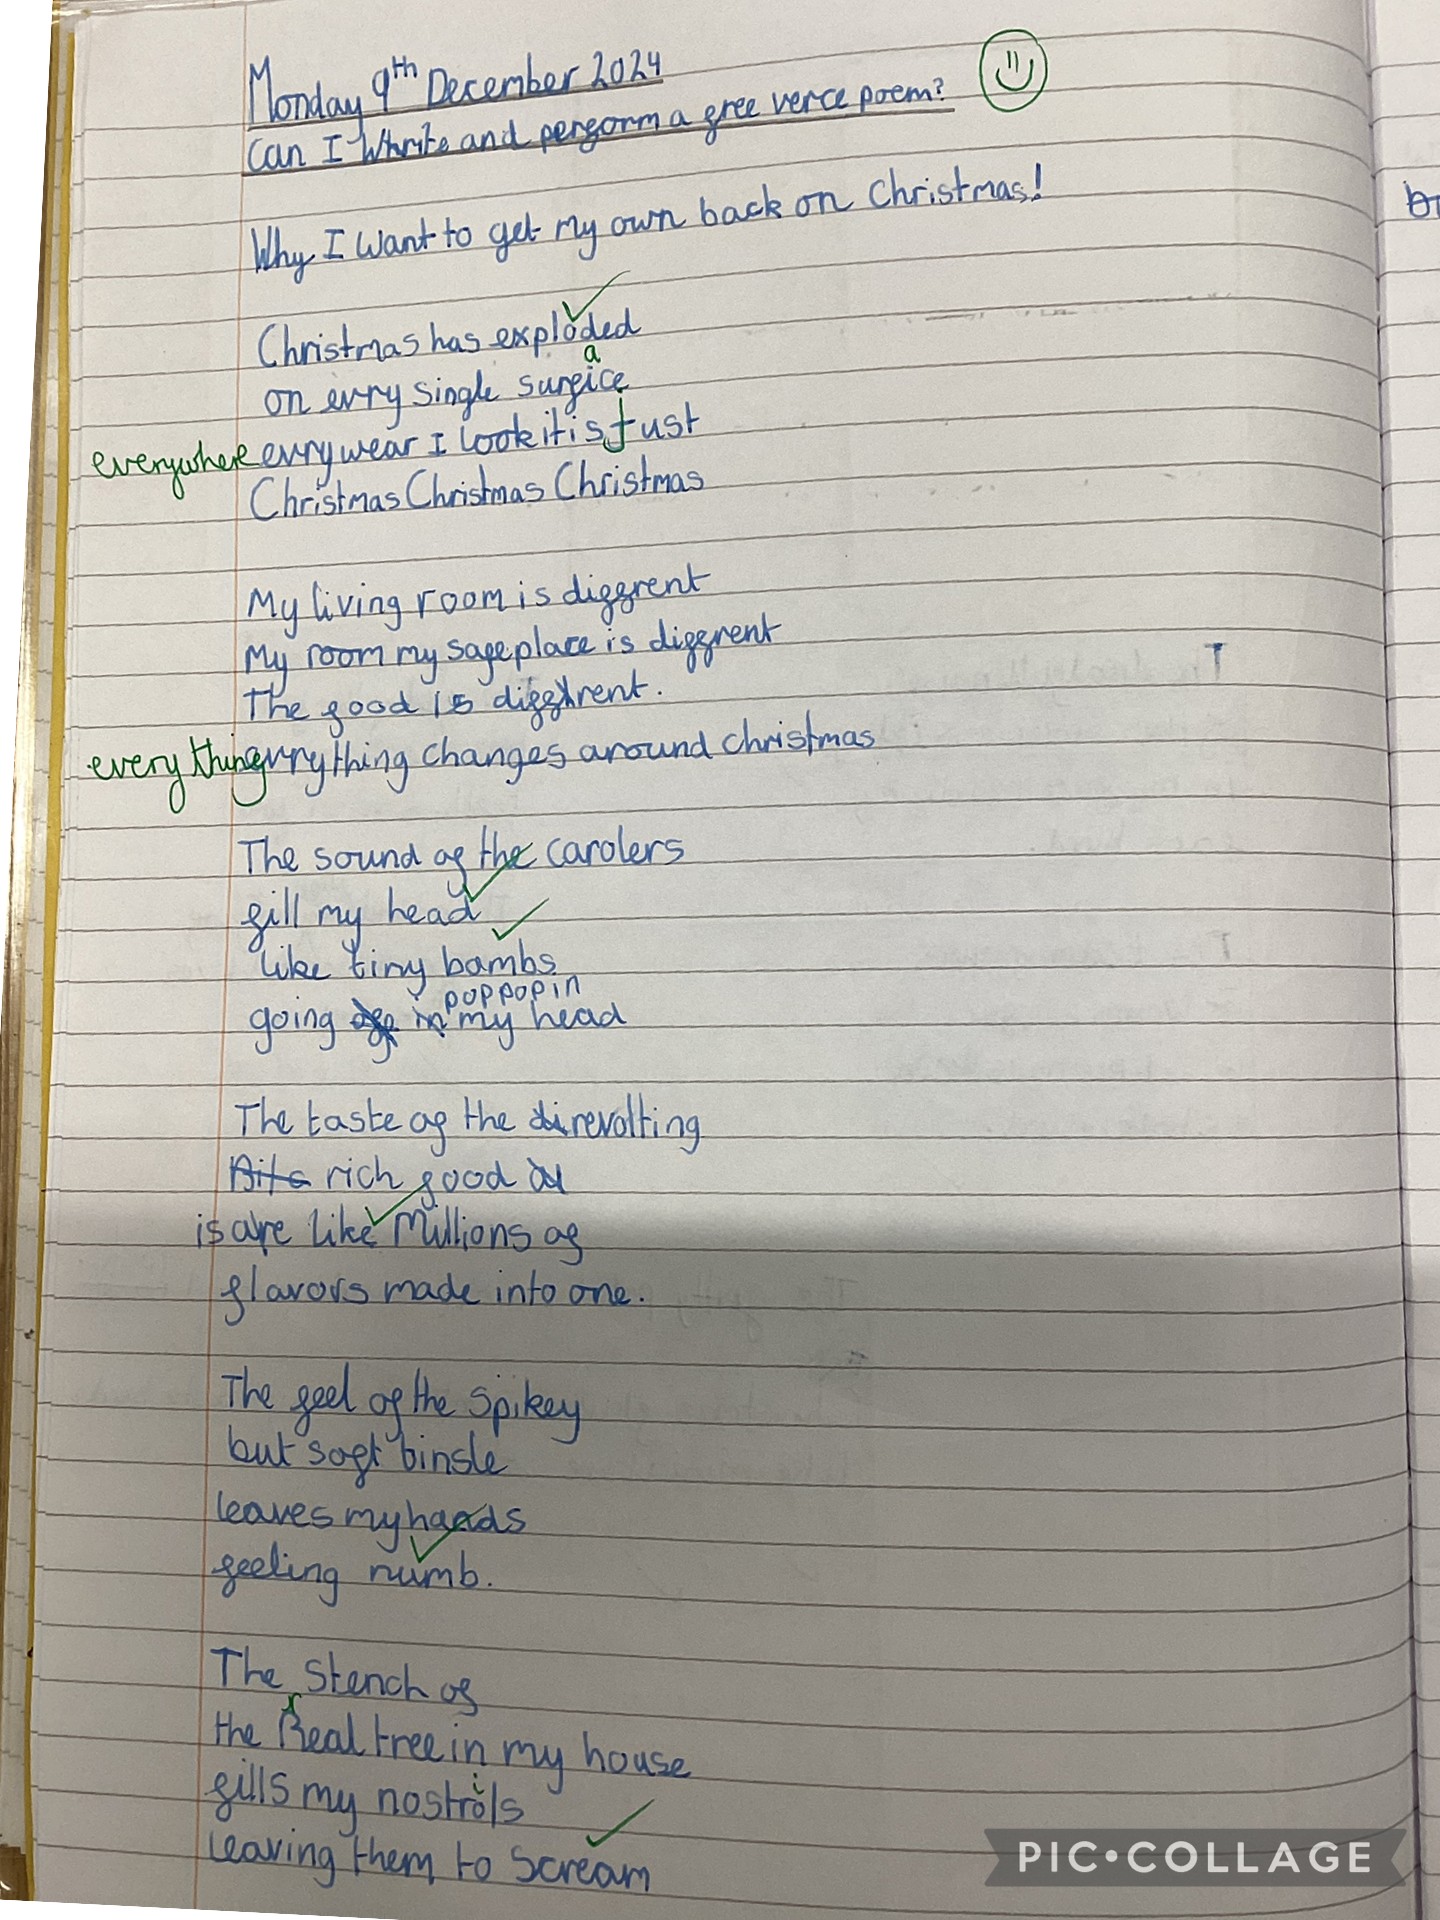 Monday 9th December 2024
Can I Whrite and perform a free verce poem?
Why I want to get my own back on Christmas!
Christmas has exploded
a
on evry single surfice
everywhere evrywear I look it is just
Christmas Christmas Christmas
My living room is diffrent
My room my safe place is diffrent
The food is diffrent.
everything evrything changes around christmas
The sound of the carolers
fill my head
like tiny bambs
pop pop in
going in my head
The taste of the revolting
Bits rich food
is are like Millions of
flavors made into one.
The feel of the spikey
but soft binsle
leaves my hands
feeling numb.
The stench of
r
the Real tree in my house
i
fills my nostrols
leaving them to scream
PIC•COLLAGE